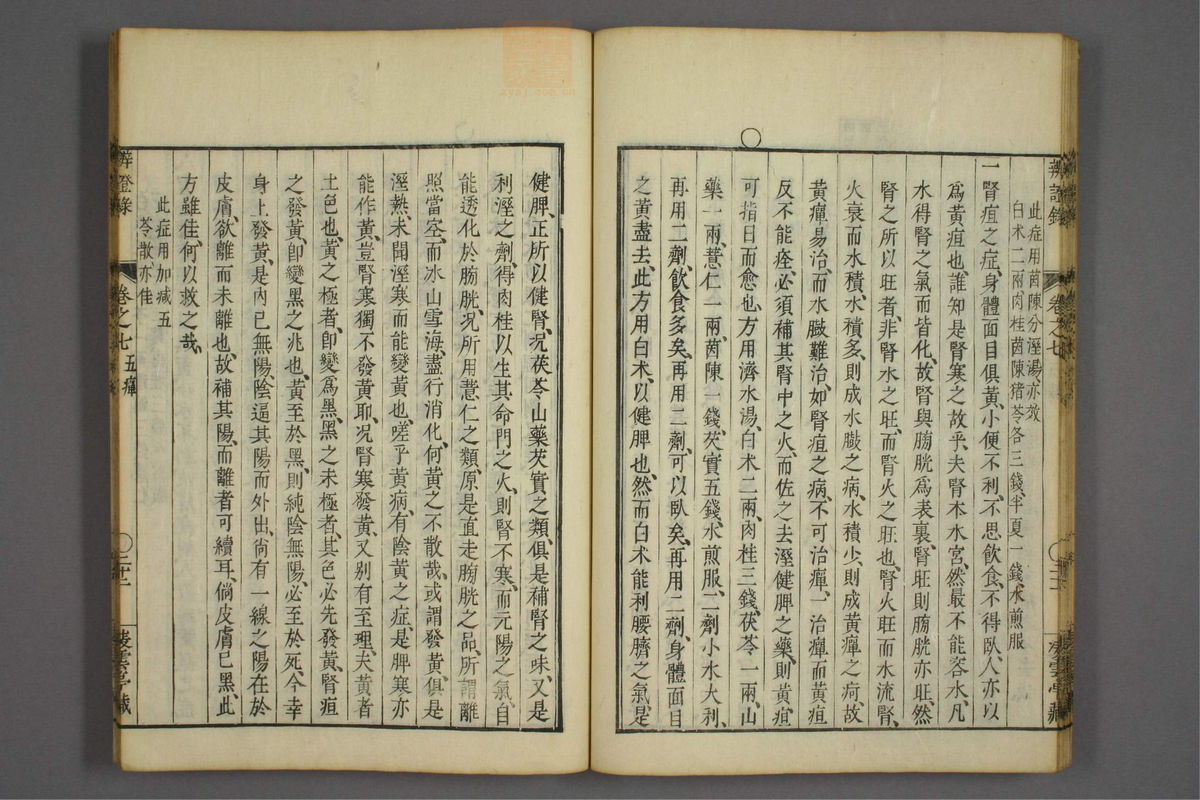 辨證錄
卷之七
此症用茵陳分溼湯亦效
白朮二兩肉桂茵陳猪苓各三錢半夏一錢水煎服
一腎疸之症身體面目俱黃小便不利不思飲食不得臥人亦以
爲黃疸也誰知是腎寒之故乎夫腎本水宮然最不能容水凡
水得腎之氣而皆化故腎與膀胱爲表裏腎旺則膀胱亦旺然
腎之所以旺者非腎水之旺而腎火之旺也腎火旺而水流腎
火衰而水積水積多則成水臌之病水積少則成黃癉之疴故
黃癉易治而水臌難治如腎疸之病不可治癉一治癉而黃疸
反不能痊必須補其腎中之火而佐之去溼健脾之藥則黃疸
可指日而愈也方用濟水湯白朮二兩肉桂三錢茯苓一兩山
藥一兩薏仁一兩茵陳一錢芡實五錢水煎服二劑小水大利
再用二劑飲食多矣再用二劑可以臥矣再用二劑身體面目
之黃盡去此方用白朮以健脾也然而白朮能利腰臍之氣是
健脾正所以健腎况茯苓山藥芡實之類俱是補腎之味又是
利溼之劑得肉桂以生其命門之火則腎不寒而元陽之氣自
能透化於膀胱况所用薏仁之類原是直走膀胱之品所謂離
照當空而冰山雪海盡行消化何黃之不散哉或謂發黃俱是
溼熱未聞溼寒而能變黃也嗟乎黃病有陰黃之症是脾寒亦
能作黃豈腎寒獨不發黃耶况腎寒發黃又别有至理夫黃者
土色也黃之極者卽變爲黑黑之未極者其色必先發黃腎疸
之發黃卽變黑之兆也黃至於黑則純陰無陽必至於死今幸
身上發黃是內已無陽陰逼其陽而外出尚有一線之陽在於
皮膚欲離而未離也故補其陽而離者可續耳倘皮膚已黑此
方雖佳何以救之哉
此症用加減五
苓散亦佳
辨證錄
卷之七
五癉